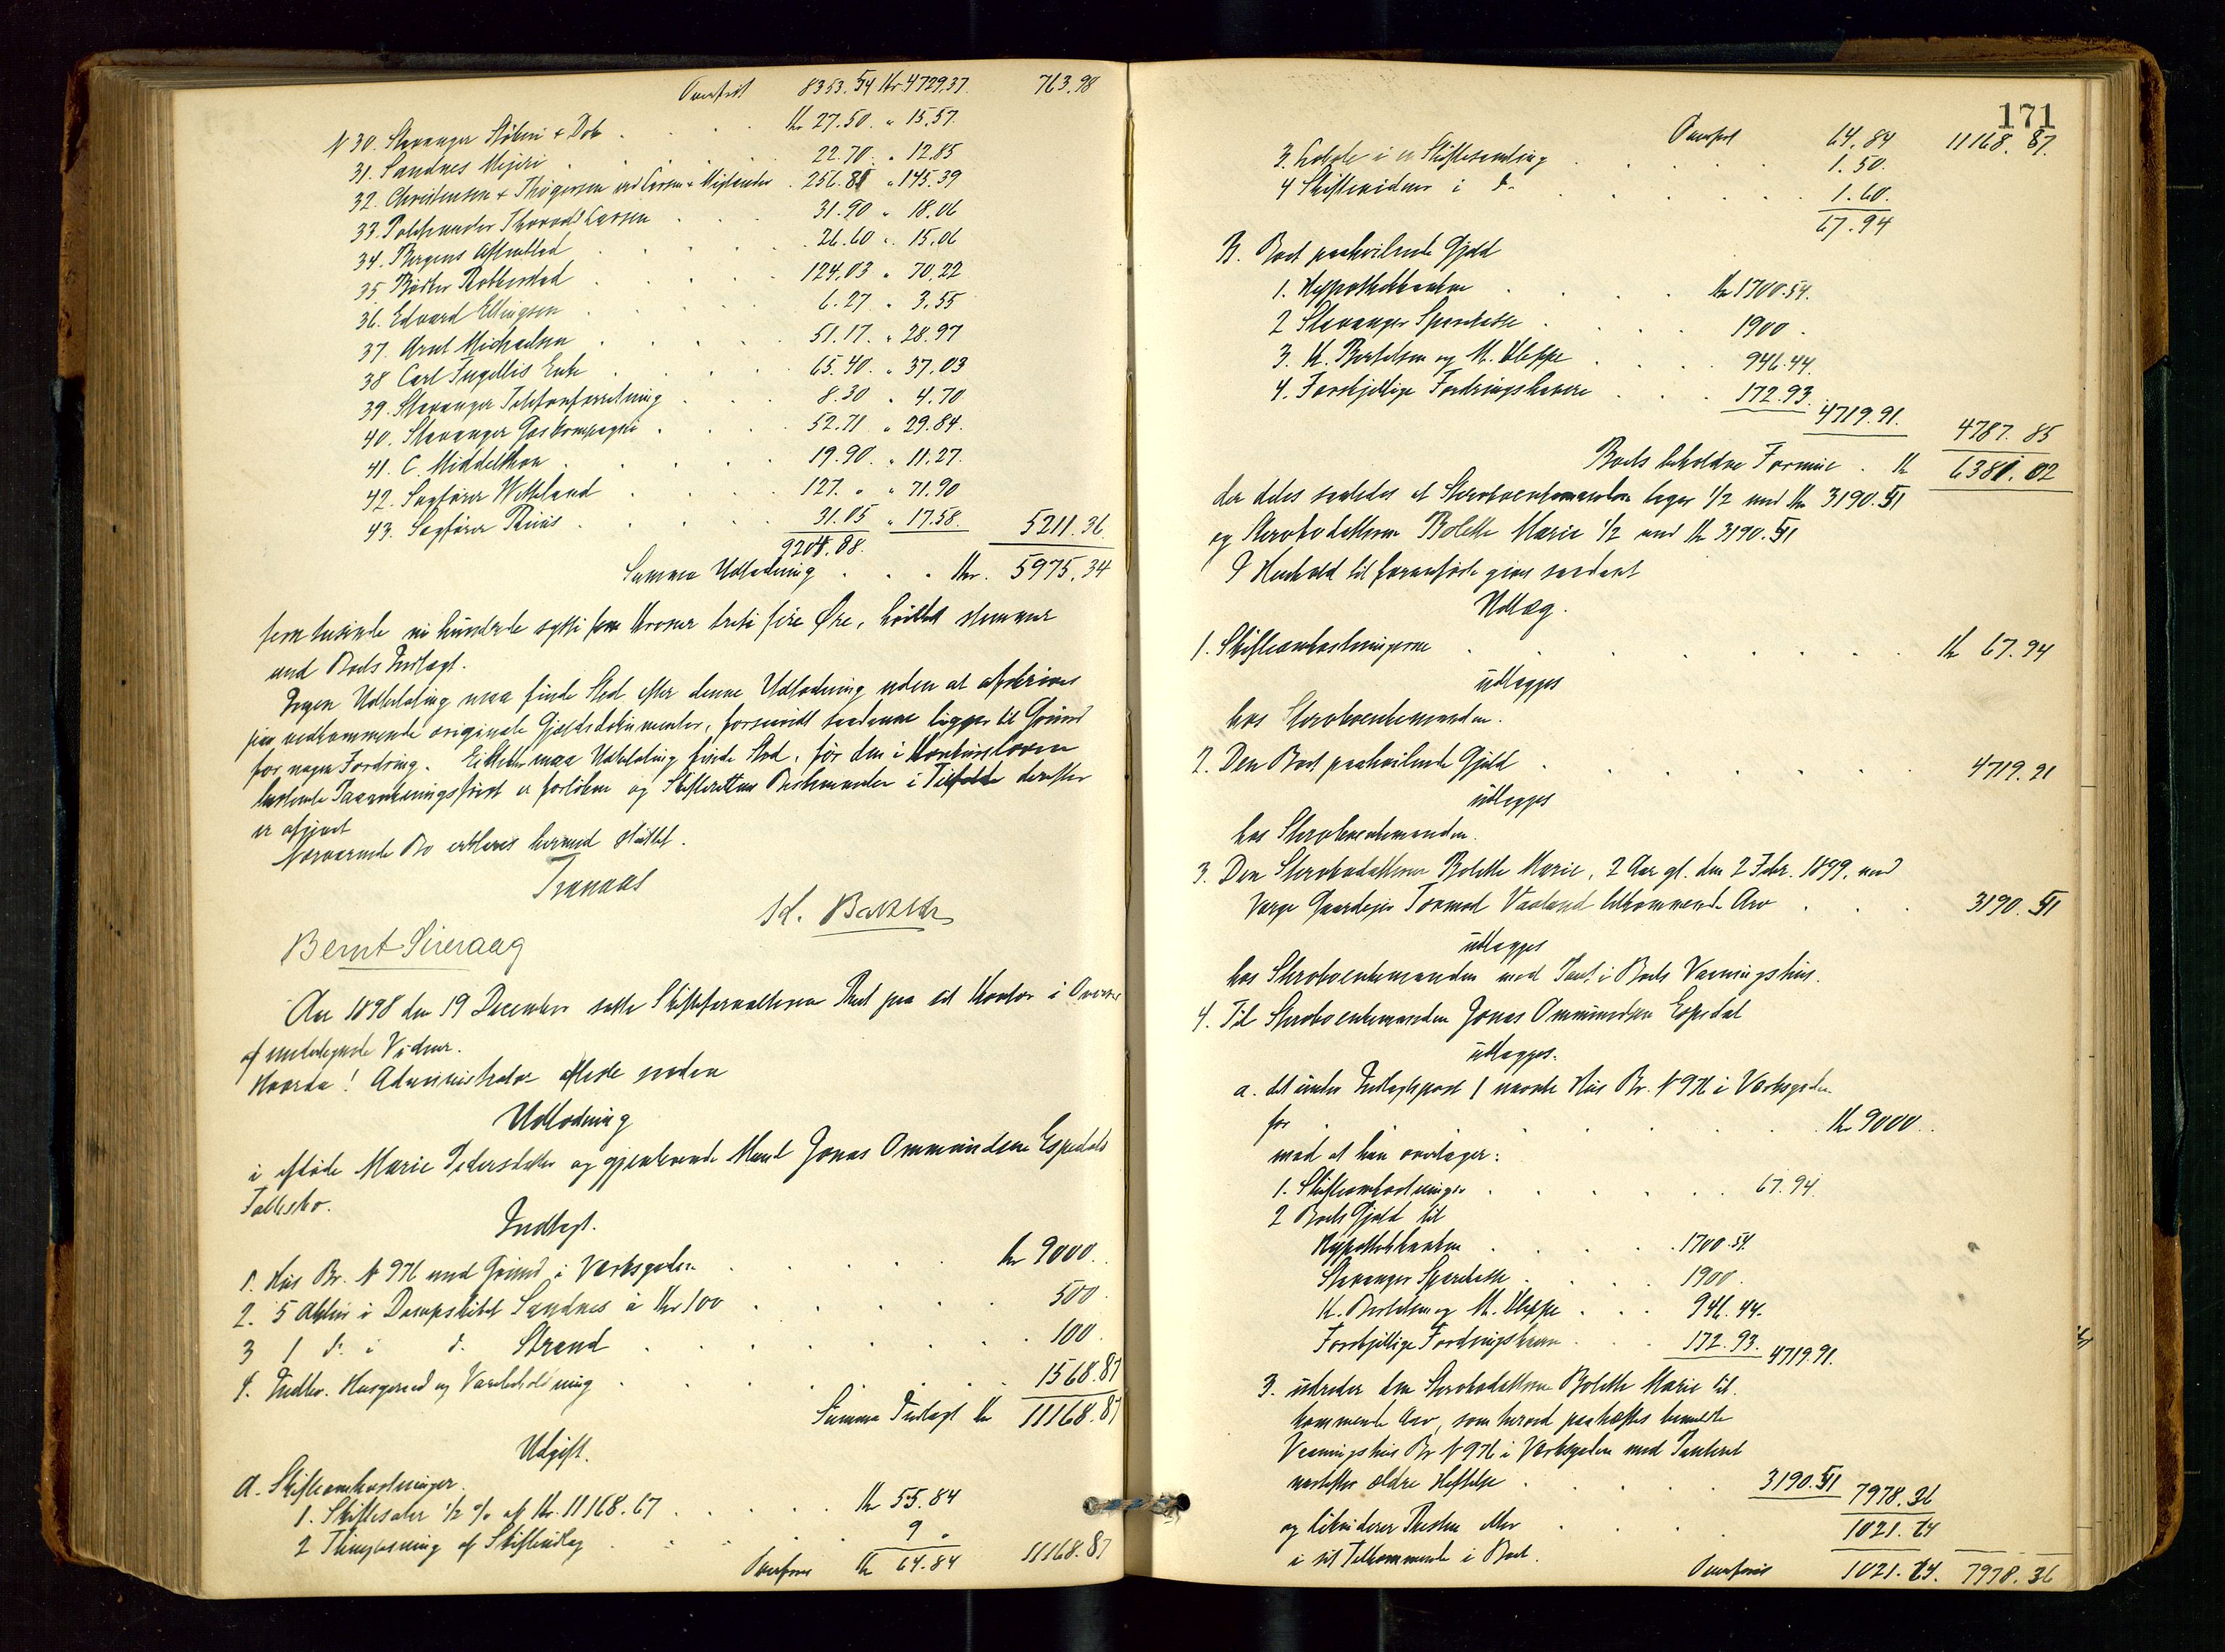 Overført 8353.54 Kr 4729.37. 763.98
N 30. Stavanger Støberi & Dok . . . Kr 27.50. " 15.57.
31. Sandnes Mejeri . . . 22.70. " 12.85
32. Christensen & Thøgersen ved Larsen & Vigtander . 256.81 " 145.39
33. Thorvald Larsen . . . 31.90 " 18.06
34. Bergens Aftenblad . . . 26.60 " 15.06
35. Bødker Rabberstad . . . 124.03 " 70.22
36. Edvard Ellingsen . . . 6.27 " 3.55
37. Arnt Michaelsen . . . 51.17. " 28.97
38 Carl Fugellis Enke . . . 65.40. " 37.03
39. Stavanger Telefonforretning . . . 8.30 " 4.70
40. Stavanger Gaskompagni . . . 52.71 " 29.84.
41. C. Middelthon . . . 19.90. " 11.27.
42. Sagfører Vetteland . . . 127. " " 71.90
43. Sagfører . . . 31.05 " 17.58. 5211.36
9204.88.
Summa Udlodning . . . Kr. 5975.34
fem tusinde ni hundrede sytti fem Kroner treti fire Øre, hvilket stemmer
med Boets Indtægt.
Ingen Udbetaling maa finde Sted efter denne Udlodning uden at afskrives
paa vedkommende originale Gjældsdokumenter, forsaavidt saadanne ligger til Grund
for nogen Fordring. Ei heller maa Udbetaling finde Sted, før den i Konkursloven
bestemte Paaankningsfrist er forløben og Skifterettens Bestemmelse i Tilfælde derefter
er afgivet
Nærværende Bo erklæres hermed sluttet.
Tranaas
Bernt Sireraag
Aar 1898 den 19 December satte Skifteforvalteren Ret paa sit Kontor i Overvær
af undertegnede Vidner.
Hvorda! Administrator afsagde saadan
Udlodning
i afdøde Marie Pedersdatter og gjenlevende Mand Jonas Ommundsen Espedals
Fællesbo.
Indtægt.
1. Hus Br. N 976 med Grund i Verksgaden . . . Kr 9000.
2. 5 Aktier i Dampskibet Sandnes à Kr 100 . . . 500.
3 1 do. i do. Strand . . . 100.
4. Indbo. Husgeraad og Varebeholdning . . . 1568.87
Summa Indtægt Kr 11168.87
Udgift.
A. Skifteomkostninger.
1. Skiftesaler ½ % af Kr. 11168.67 . . . Kr 55.84
2 Thinglæsning af Skifteudlæg . . . 9 "
Overføres Kr 64.84 11168.87
171
Overført 64.84 11168.87.
3. Lokale i en Skiftesamling . . . 1.50.
4 Skiftevidner i do. . . . 1.60.
67.94
B. Boet paahvilende Gjæld
1. Hypothekbanken . . . Kr 1700.54.
2 Stavanger Sparekasse . . . 1900.
3. K. Bertelsen og M. Kleppe . . . 946.44.
4. Forskjellige Fordringshavere . . . 172.93. 4719.91. 4787.85
Boets beholdne Formue . Kr 6381.02
der deles saaledes at Stervboenkemanden tager ½ med Kr 3190.51
og Stervbodatteren Bolette Marie ½ med Kr 3190.51
I Henhold til foranførte gives saadant
Udlæg.
1. Skifteomkostningerne . . . Kr 67.94
udlægges
hos Stervboenkemanden.
2. Den Boet paahvilende Gjæld . . . 4719.91
udlægges
hos Stervboenkemanden.
3. Den Stervbodatteren Bolette Marie, 2 Aar gl. den 2 Febr. 1899, med
Værge Gaardejer Tormod Vaaland tilkommende Arv . . . 3190.51
udlægges
hos Stervboenkemanden mod Pant i Boets Vaaningshus.
4. Til Stervboenkemanden Jonas Ommundsen Espedal
udlægges.
a. det under Indtægtspost 1 nævnte Hus Br. N 976 i Verksgaden
for . . . Kr 9000.
mod at han overtager:
1. Skifteomkostninger . . . 67.94.
2 Boets Gjæld til
Hypothekbanken . . . 1700.54.
Stavanger Sparekasse . . . 1900.
K. Bertelsen og M. Kleppe . . . 946.44.
Forskjellige Fordringshavere . . . 172.93. 4719.91.
3. udreder den Stervbodatteren Bolette Marie til-
kommende Arv, som herved paahæftes bemeldte
Vaaningshus Br N 976 i Verksgaden med Panteret
næstefter ældre Heftelse . . . 3190.51 7978.36
og likviderer Resten eller . . . 1021.64
i sit Tilkommende i Boet.
Overføres 1021.64. 7978.36